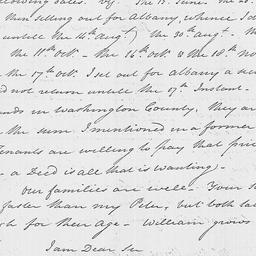 lowing Sales. Vy. The 13. June. The 20.
then selling out for Albany, whence I d
untill the 14th Augt) the 30th augt. - 
the 11th Octr. - the 16th Octr & the 18th No
the 17th Octr. I set out for Albany a sec
did not return untill the 17th Instant -
ands in Washington County, they are
the sum I mentioned in a former
Tenants are willing to pay that price
- a Deed is all that is wanting) -
Our families are well - Your S
faster than my Peter, but both la
for their Age - William grows
I am Dear Sir